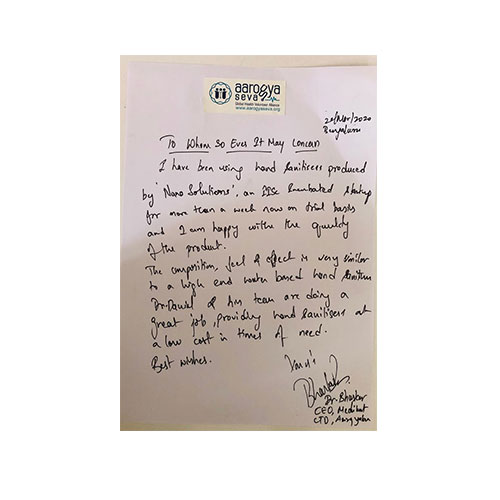 aarogya
seva
Global Health Volunteer Alliance
www.aarogyaseva.org
20/Mar/2020
Bengaluru
To Whom So Ever It May Concern
I have been using hand sanitisers produced
by 'Nano Solutions', an IISc Incubated startup
for more than a week now on trial basis
and I am happy with the quality
of the product.
The composition, feel & effect is very similar
to a high end water based hand sanitizer
Dr. & his team are doing a
great job, providing hand sanitisers at
a low cost in times of need.
Best wishes.
Dr. Bhaskar
CEO,
CTO,